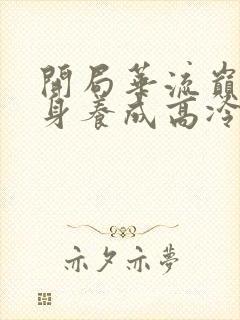 開局華流巔
身養成高冷
亦夕亦夢